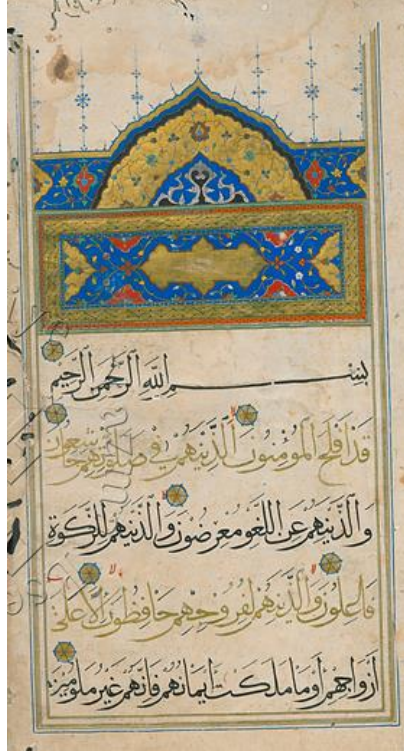 بِسْمِ اللَّهِ الرَّحْمَنِ الرَّحِيمِ
قَدْ أَفْلَحَ الْمُؤْمِنُونَ الَّذِينَ هُمْ فِي صَلَوتِهِمْ خَاشِعُونَ
وَالَّذِينَ هُمْ عَنِ اللَّغْوِ مُعْرِضُونَ وَالَّذِينَ هُمْ لِلزَّكَوةِ
فَاعِلُونَ وَالَّذِينَ هُمْ لِفُرُوجِهِمْ حَافِظُونَ إِلَّا عَلَى
أَزْوَاجِهِمْ أَوْ مَا مَلَكَتْ أَيْمَانُهُمْ فَإِنَّهُمْ غَيْرُ مَلُومِينَ